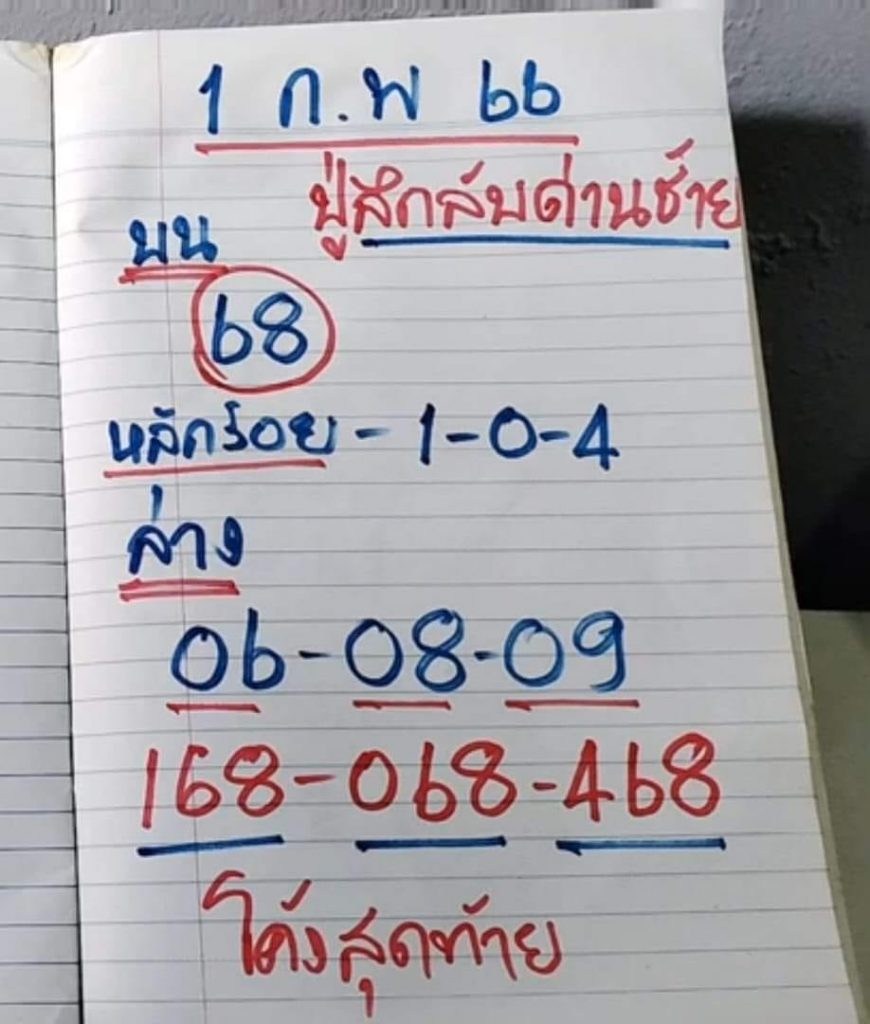 1 ก.พ 66
ปู่สึกลับด่านช้าย
บน
68
หลักร้อย - 1-0-4
ล่าง
06-08-09
168-068-468
โค้งสุดท้าย